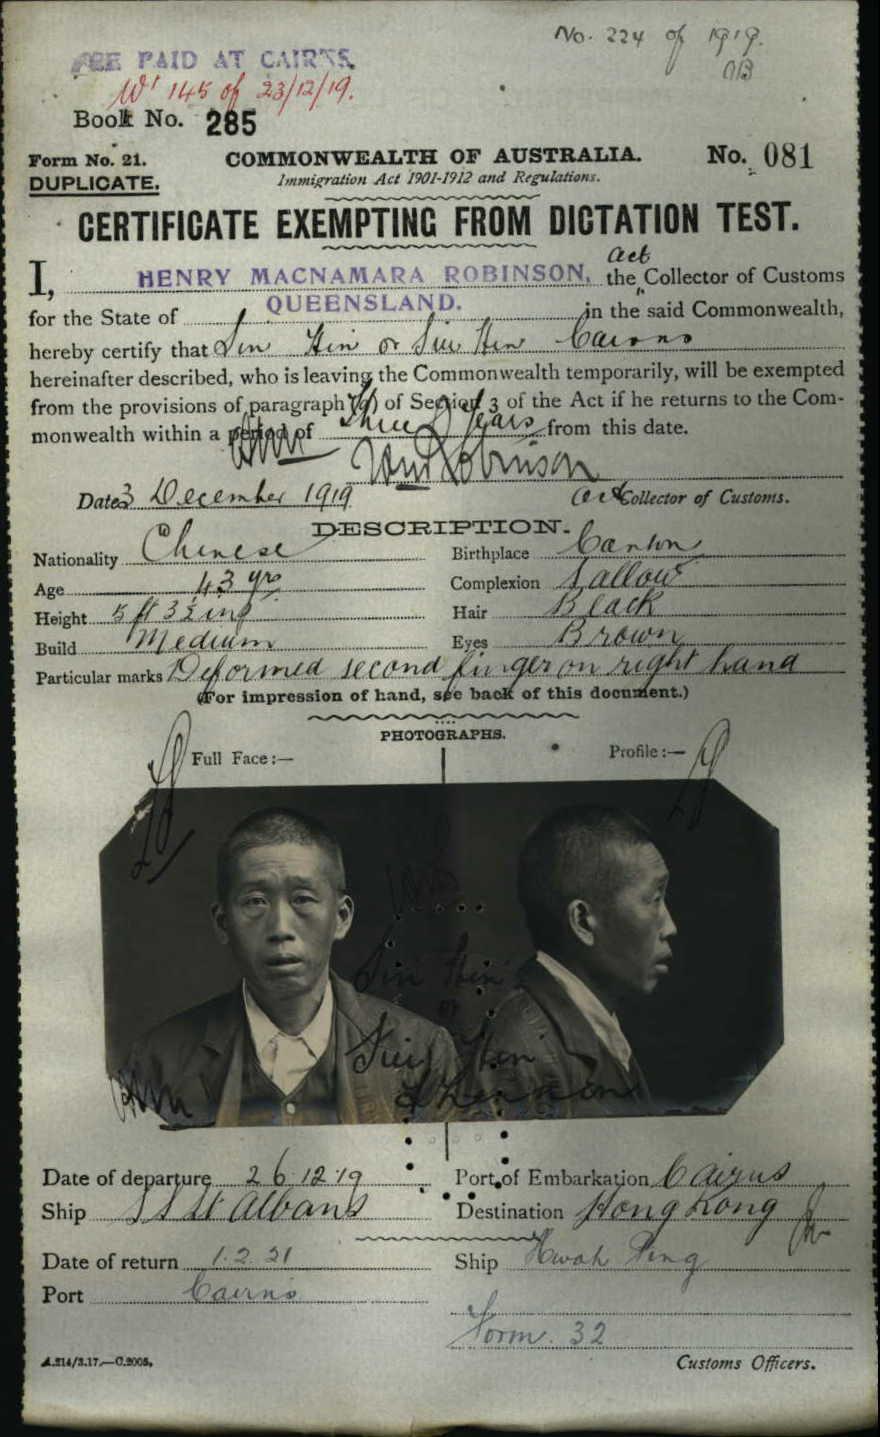 No. 224 of 1919.
FEE PAID AT CAIRNS.
Wt 145 of 23/12/19.
Book No. 285
Form No. 21.
COMMONWEALTH OF AUSTRALIA.
No. 081
DUPLICATE.
Immigration Act 1901-1912 and Regulations.
CERTIFICATE EXEMPTING FROM DICTATION TEST.
I, HENRY MACNAMARA ROBINSON, the Act Collector of Customs
for the State of QUEENSLAND. in the said Commonwealth,
hereby certify that Sin Hin or Sui Hin Cairns
hereinafter described, who is leaving the Commonwealth temporarily, will be exempted
from the provisions of paragraph (a) of Section 3 of the Act if he returns to the Com-
monwealth within a period of Three Years from this date.
HM Robinson
Date 3 December 1919
Act Collector of Customs.
DESCRIPTION.
Nationality Chinese
Birthplace Canton
Age 43 yrs
Complexion Sallow
Height 5 ft 3½ ins
Hair Black
Build Medium
Eyes Brown
Particular marks Deformed second finger on right hand
(For impression of hand, see back of this document.)
PHOTOGRAPHS.
Full Face:—
Profile:—
Sin Hin
or
Sui Hin
Date of departure 26.12.19
Port of Embarkation Cairns
Ship SS St Albans
Destination Hong Kong
Date of return 1.2.21
Ship Hwah Ping
Port Cairns
Form. 32
A.214/3.17.—C.2005.
Customs Officers.